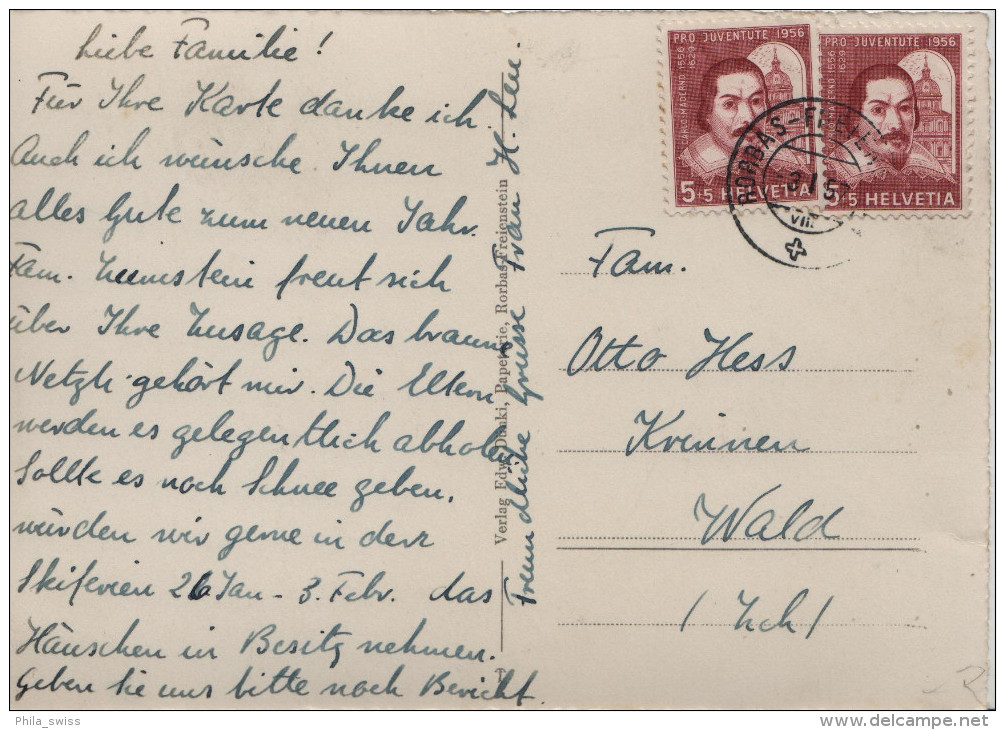 Liebe Familie!
Für Ihre Karte danke ich.
Auch ich wünsche Ihnen
alles Gute zum neuen Jahr.
Fam. Zumstein freut sich
über Ihre Zusage. Das braune
Netzli gehört mir. Die Eltern
werden es gelegentlich abholen.
Sollte es noch Schnee geben,
würden wir gerne in der
Skiferien 26 Jan - 3. Febr. das
Häuschen in Besitz nehmen.
Geben Sie uns bitte noch Bericht.
Freundliche Grüsse Frau H.
Verlag Edw. Dünki, Papeterie, Rorbas-Freienstein
PRO JUVENTUTE 1956
CARLO MADERNO 1556
1629
5+5 HELVETIA
PRO JUVENTUTE 1956
MADERNO 1556
1629
5+5 HELVETIA
RORBAS-FREIEN
VII
Fam.
Otto Hess
Krinnen
Wald
(Zch)
Phila_swiss
www.delcampe.net